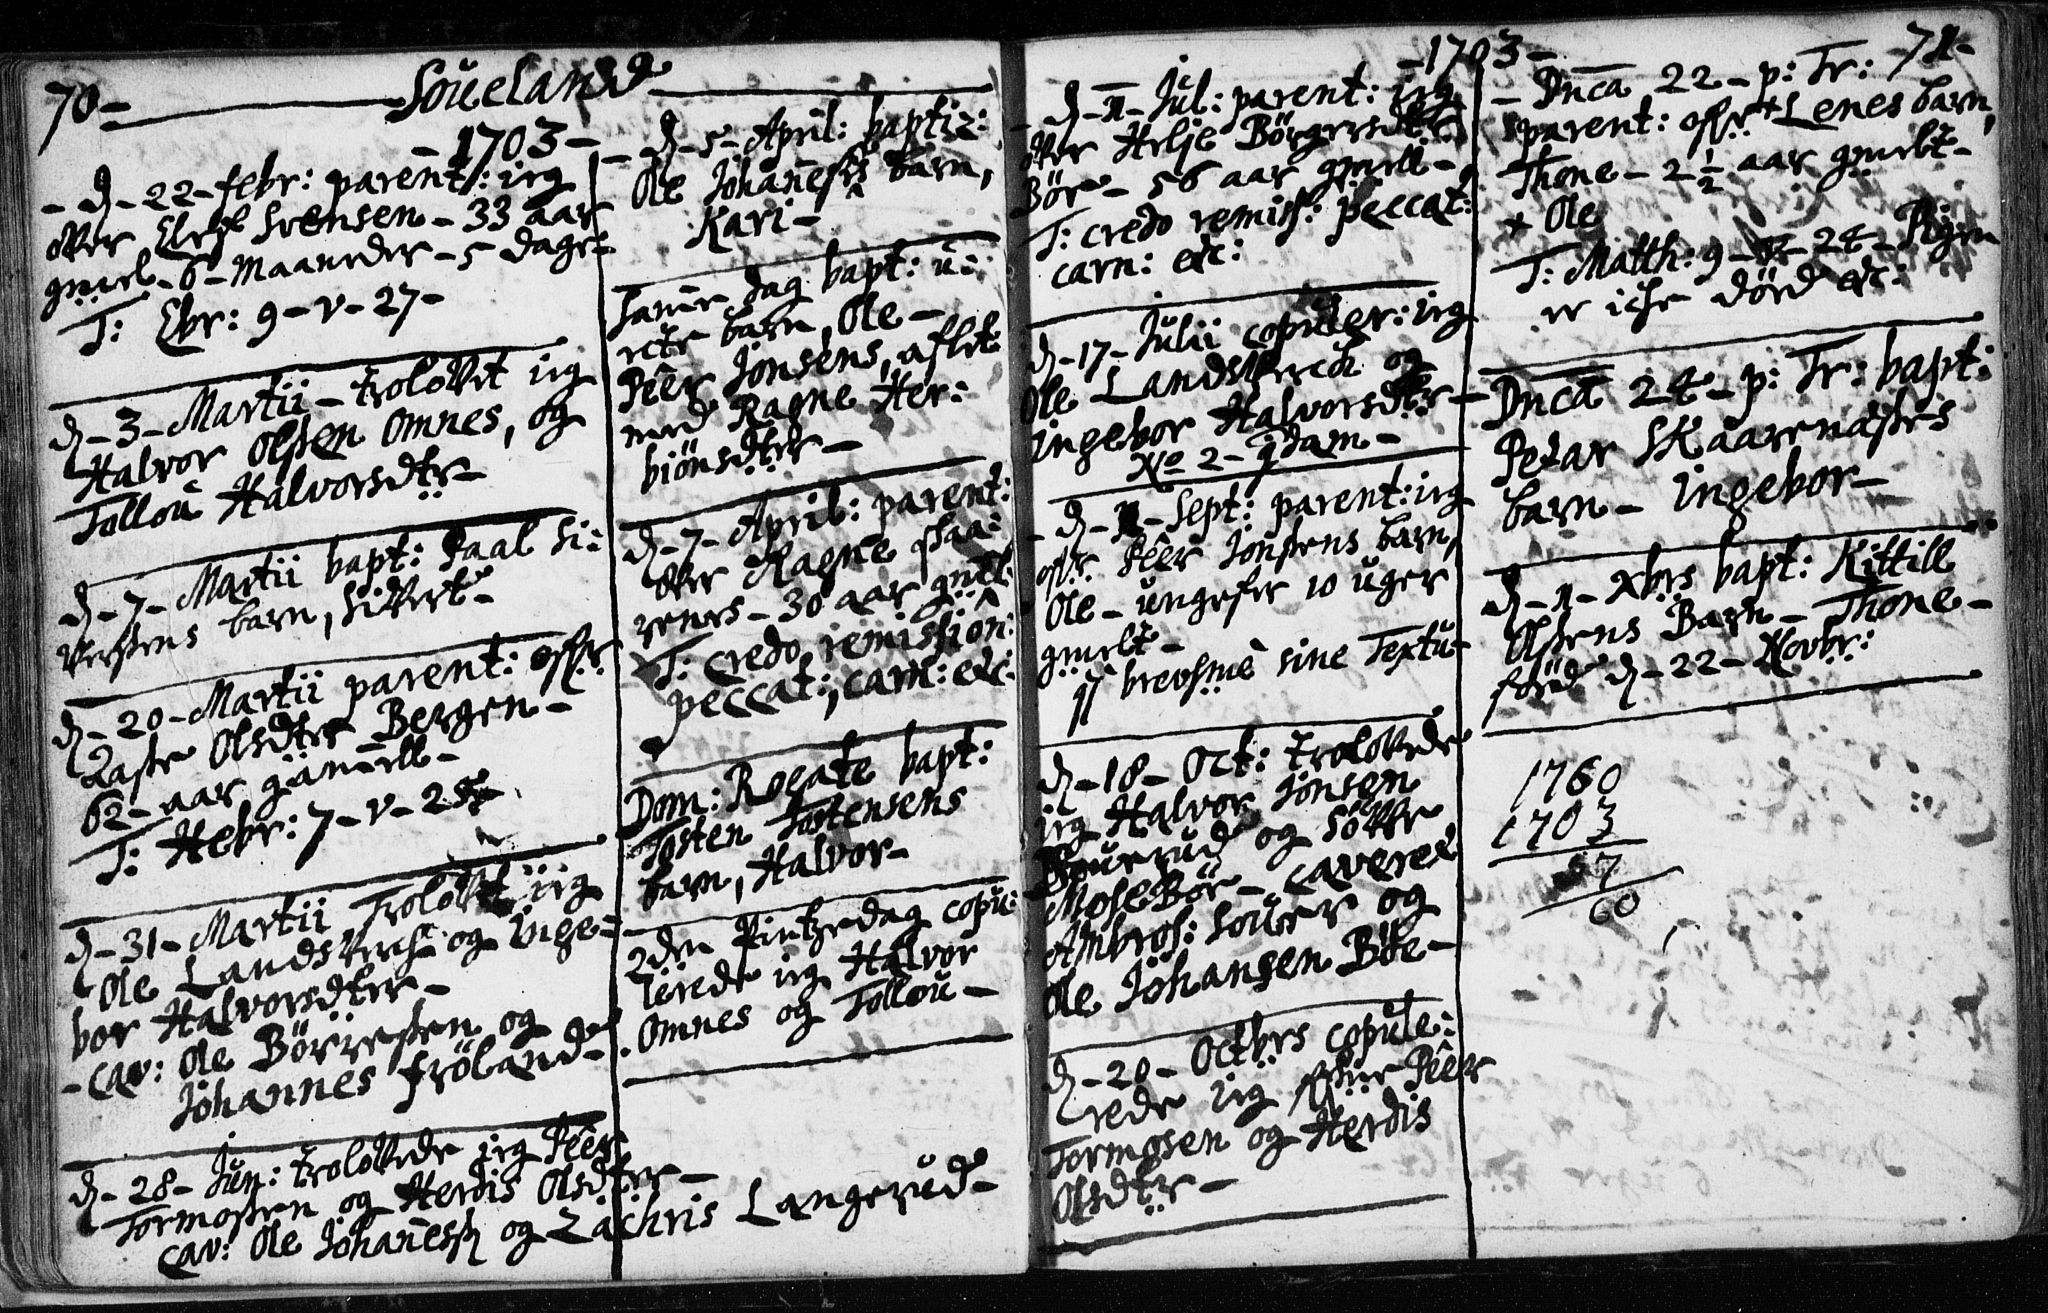 70 - Soueland
- 1703 -
- D - 22 - febr: parent: ieg
ofver Elef Svensen - 33 aar
gmel - 6 - Maaneder - 5 dage -
T: Ebr: 9 - v - 27 -
D - 3 - Martii - trolofvet ieg
Halvor Olsen Omnes, og
Tollou Halvorsdtr -
D - 7 - Martii bapt: Paal Si:
versens barn, Sivert -
D - 20 - Martii parent: offr
Aase Olsdter Bergen -
62 - aar gammell -
T: Hebr: 7 - v - 25
D - 31 - Martii Trolofvet ieg
Ole Landsverch og Inge=
bor Halvorsdter -
- Cav: Ole Börresen og
Johannes Fröland -
D - 28 - Jun: trolofvede ieg Pêer
Tormosen og Herdis Olsdter -
Cav: Ole Johaness og Zachris Langerud -
- D - 5 - April: baptiz:
Ole Johaness barn,
Kari -
Samme dag bapt: u:
ecte barn, Ole -
Pêer Jonsens, aflet
med Ragne Her:
biönsdter -
D - 7 - April: parent:
ofver Ragne staa:
renes - 30 aar gmel
T: Credo remission:
peccat:, carn: etc:
Dom: Rogate bapt:
Tosten Tostensens
barn, Halvor -
2den Pintzedag copu:
lerede ieg Halvor
Omnes og Tollou -
- 1703 - 71 -
- D - 1 - Jul: parent: ieg
ofver Helje Börgersdtr
Bör - 56 aar gmell -
T: Credo remiss: peccat:
carn: etc:
D - 17 - Julii copuler: ieg
Ole Landsverch og
Ingebor Halvorsdter -
No 2 - qdam -
- D - 1 - Sept: parent: ieg
ofvr Pêer Jonsens barn,
Ole - ungefer 10 uger
gmelt -
qs brevsme sine Textu -
D - 18 - Oct: trolofvede
ieg Halvor Jonsen
og Söfver
MoseBör - Caveret
Ambros: Souer og
Ole Johansen Böe -
D - 20 - Octbrs copule:
rede ieg Pêer
Tormosen og Herdis
Olsdtr -
- Dnca 22 - p: Tr:
parent: offr Lenes barn,
Thone - 2 1/2 aar gmelt -
+ Ole
T: Matth: 9 - v - 24 - Pigen
er iche död etc:
Dnca 24 - p: Tr: bapt:
Pedar Skaarnases
barn - Ingebor -
D - 1 - Xbrs bapt: Kittill
Olsens Barn - Thone -
föd D - 22 - Novbr:
1760
1703
57
60